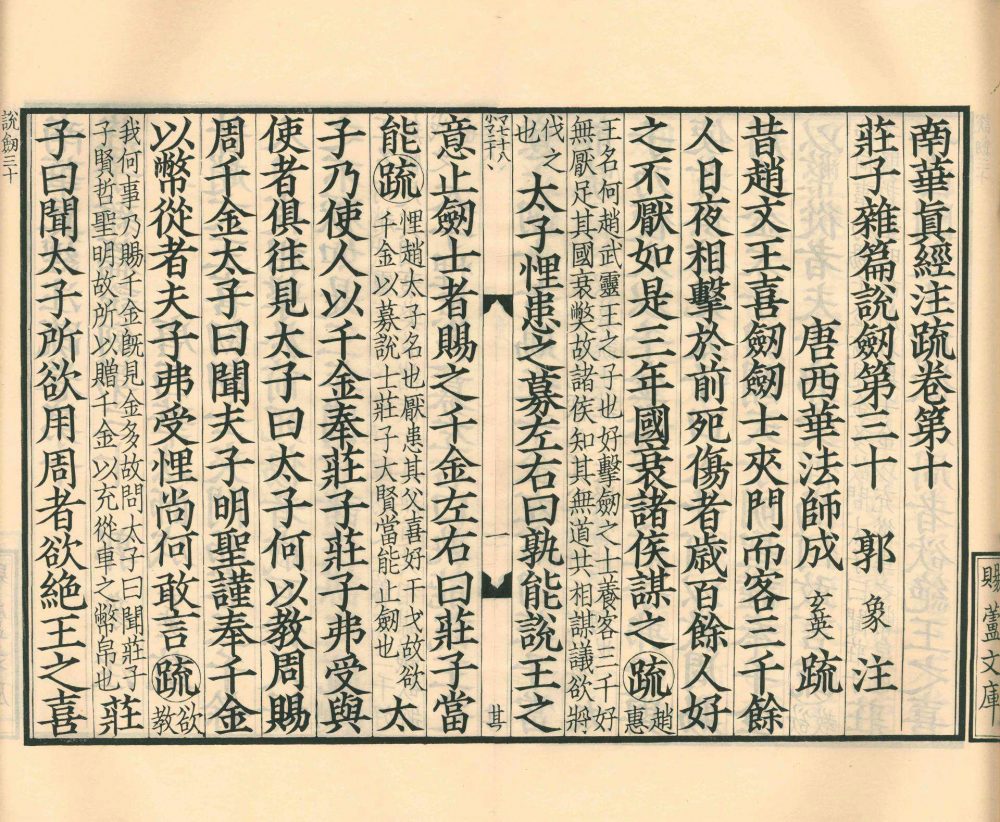 南華眞經注疏卷第十
莊子雜篇說劔第三十　郭象注
唐西華法師成玄英疏
昔趙文王喜劔劔士夾門而客三千餘
人日夜相擊於前死傷者歲百餘人好
之不厭如是三年國衰諸侯謀之疏趙惠
王名何趙武靈王之子也好擊劔之士養客三千好
無厭足其國衰弊故諸侯知其無道共相謀議欲將
伐之也太子悝患之募左右曰孰能說王之
意止劔士者賜之千金左右曰莊子當
能疏悝趙太子名也厭患其父喜好干戈故欲
千金以募說士莊子大賢當能止劔也太
子乃使人以千金奉莊子莊子弗受與
使者俱往見太子曰太子何以教周賜
周千金太子曰聞夫子明聖謹奉千金
以幣從者夫子弗受悝尚何敢言疏欲教
我何事乃賜千金旣見金多故問太子曰聞莊子
子賢哲聖明故所以贈千金以充從車之幣帛也莊
子曰聞太子所欲用周者欲絶王之喜
說劔三十
一
賜蘆文庫